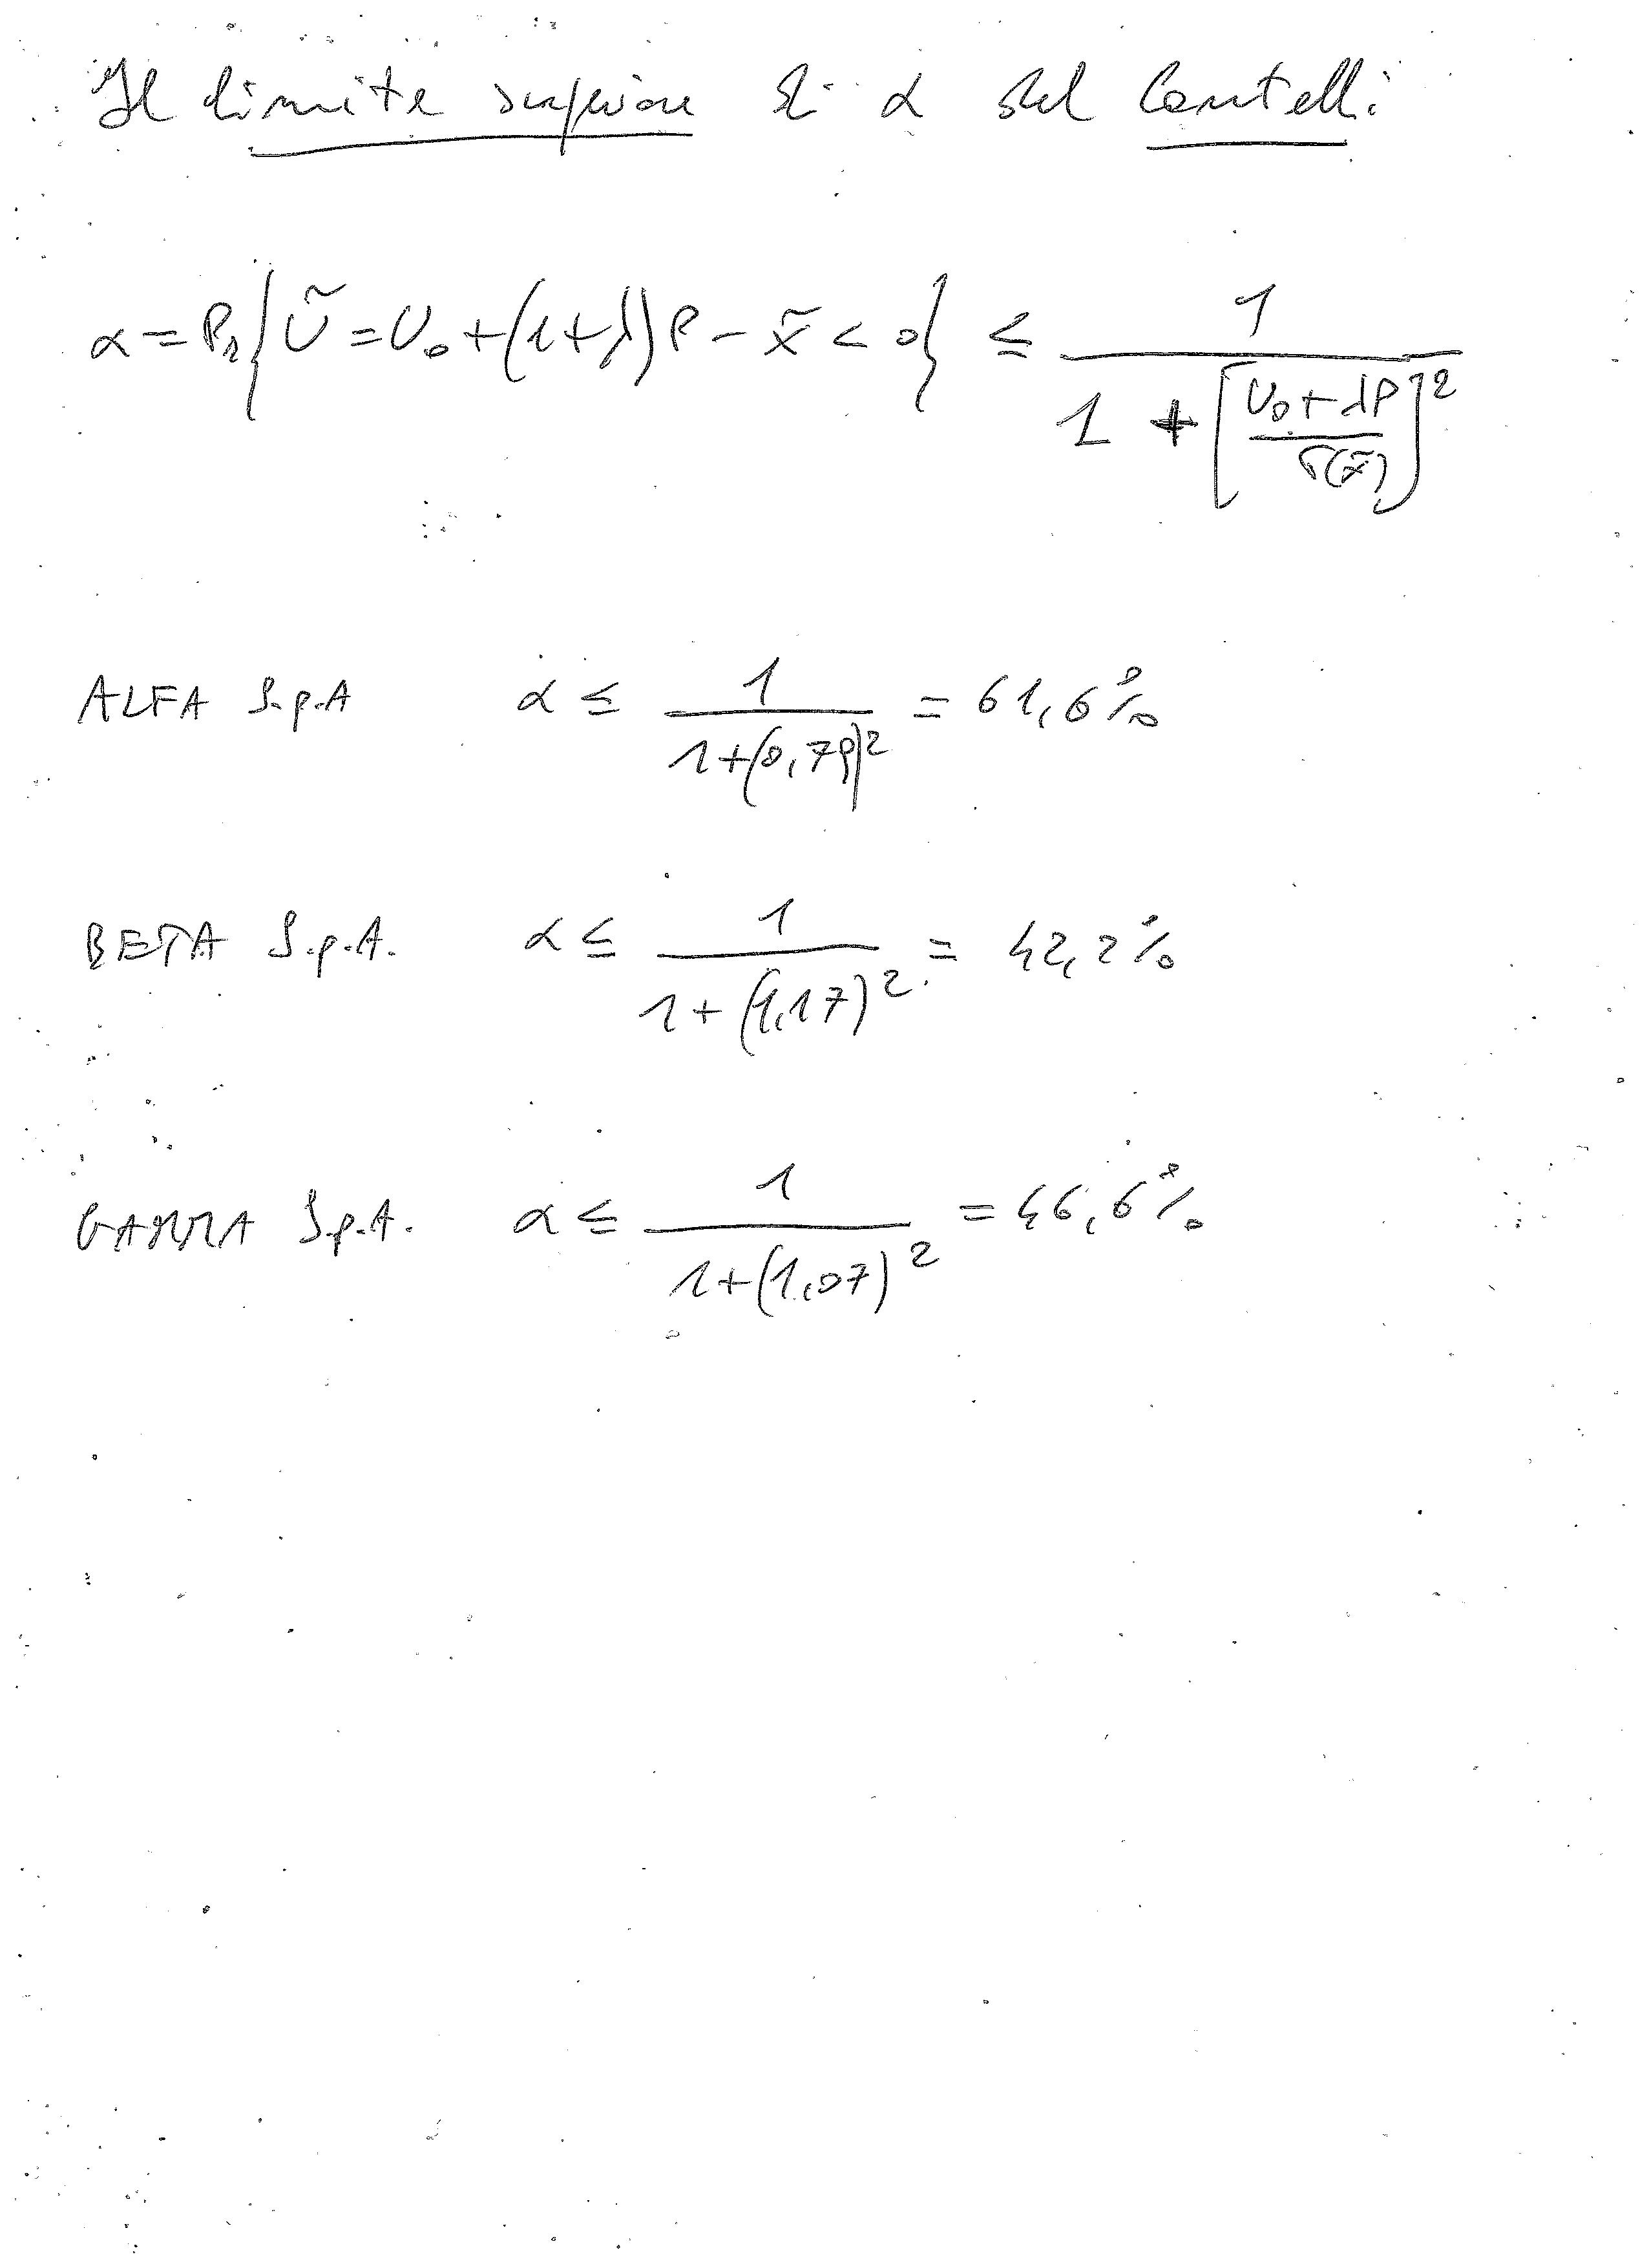 Il limite superiore di α del Cantelli
α = Pr{Ũ = U₀ + (1+λ)P − x̃ < 0} ≤ 1 / (1 + [(U₀ + λP) / σ(x̃)]²)
ALFA S.p.A α ≤ 1 / (1+(0,79)²) = 61,6%
BETA S.p.A. α ≤ 1 / (1+(1,17)²) = 42,2%
GAMMA S.p.A. α ≤ 1 / (1+(1,07)²) = 46,6%